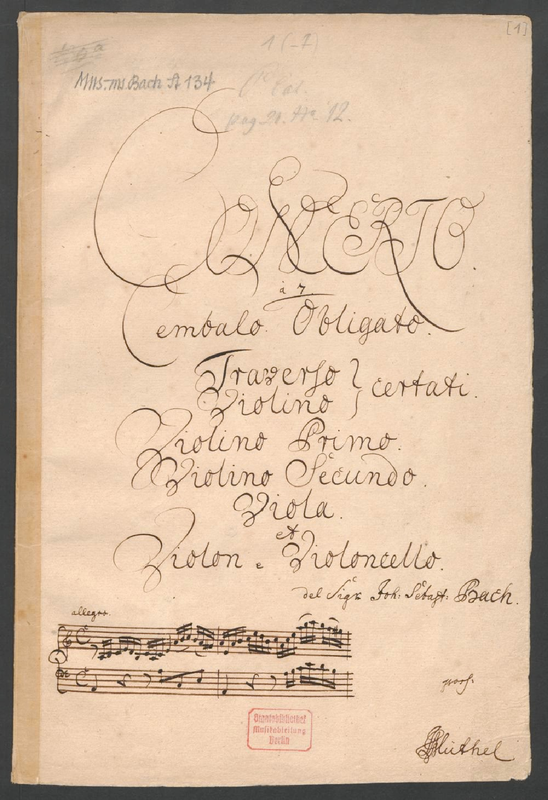 [1]
1 (-7)
Mus. ms. Bach St 134
pag 20. No 12.
CONCERTO.
à 7
Cembalo Obligato.
Traverso
Violino
certati.
Violino Primo.
Violino Secundo.
Viola.
et
Violon e Violoncello.
del Sigr. Joh: Sebast: Bach.
allegro.
Staatsbibliothek
Musikabteilung
Berlin
poss:
Müthel